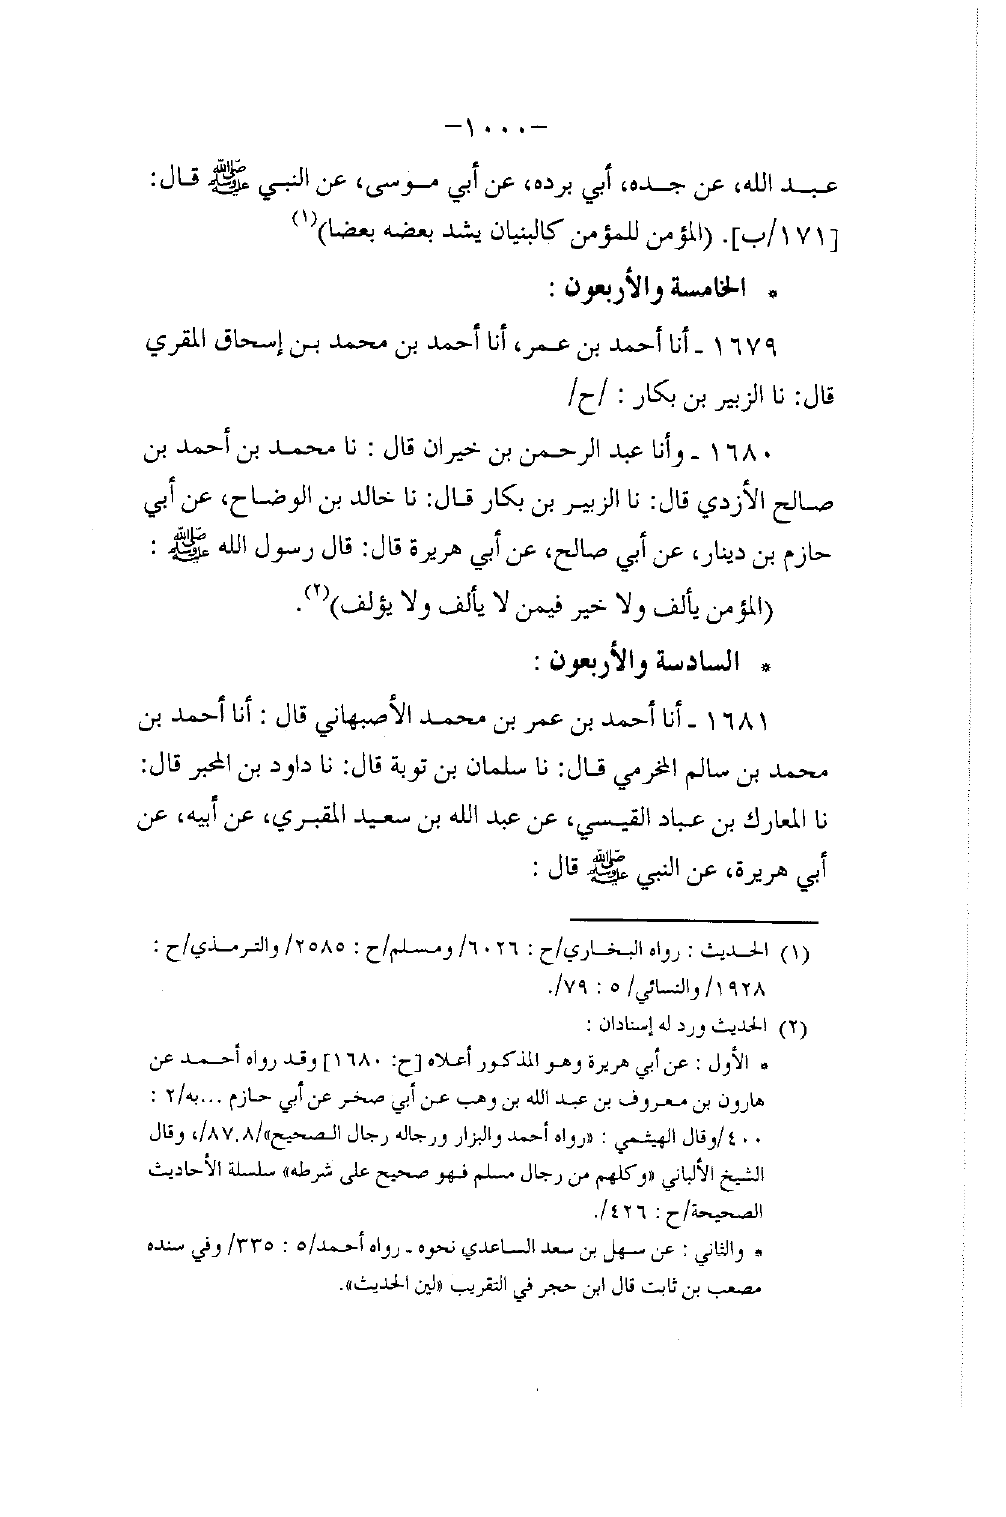 -١٠٠٠-
عبد الله، عن جده، أبي برده، عن أبي موسى، عن النبي ﷺ قال:
[١٧١/ب]. (المؤمن للمؤمن كالبنيان يشد بعضه بعضا)(١)
* الخامسة والأربعون :
١٦٧٩ - أنا أحمد بن عمر، أنا أحمد بن محمد بن إسحاق المقري
قال: نا الزبير بن بكار : /ح/
١٦٨٠ - وأنا عبد الرحمن بن خيران قال : نا محمد بن أحمد بن
صالح الأزدي قال: نا الزبير بن بكار قال: نا خالد بن الوضاح، عن أبي
حازم بن دينار، عن أبي صالح، عن أبي هريرة قال: قال رسول الله ﷺ :
(المؤمن يألف ولا خير فيمن لا يألف ولا يؤلف)(٢).
* السادسة والأربعون :
١٦٨١ - أنا أحمد بن عمر بن محمد الأصبهاني قال : أنا أحمد بن
محمد بن سالم المخرمي قال: نا سلمان بن توبة قال: نا داود بن المحبر قال:
نا المعارك بن عباد القيسي، عن عبد الله بن سعيد المقبري، عن أبيه، عن
أبي هريرة، عن النبي ﷺ قال :
(١) الحديث : رواه البخاري/ح : ٦٠٢٦/ ومسلم/ح : ٢٥٨٥/ والترمذي/ح :
١٩٢٨/ والنسائي/ ٥ : ٧٩/.
(٢) الحديث ورد له إسنادان :
* الأول : عن أبي هريرة وهو المذكور أعلاه [ح: ١٦٨٠] وقد رواه أحمد عن
هارون بن معروف بن عبد الله بن وهب عن أبي صخر عن أبي حازم ...به/٢ :
٤٠٠/وقال الهيثمي : «رواه أحمد والبزار ورجاله رجال الصحيح»/٨٧.٨/، وقال
الشيخ الألباني «وكلهم من رجال مسلم فهو صحيح على شرطه» سلسلة الأحاديث
الصحيحة/ح : ٤٢٦/.
* والثاني : عن سهل بن سعد الساعدي نحوه - رواه أحمد/٥ : ٣٣٥/ وفي سنده
مصعب بن ثابت قال ابن حجر في التقريب «لين الحديث».